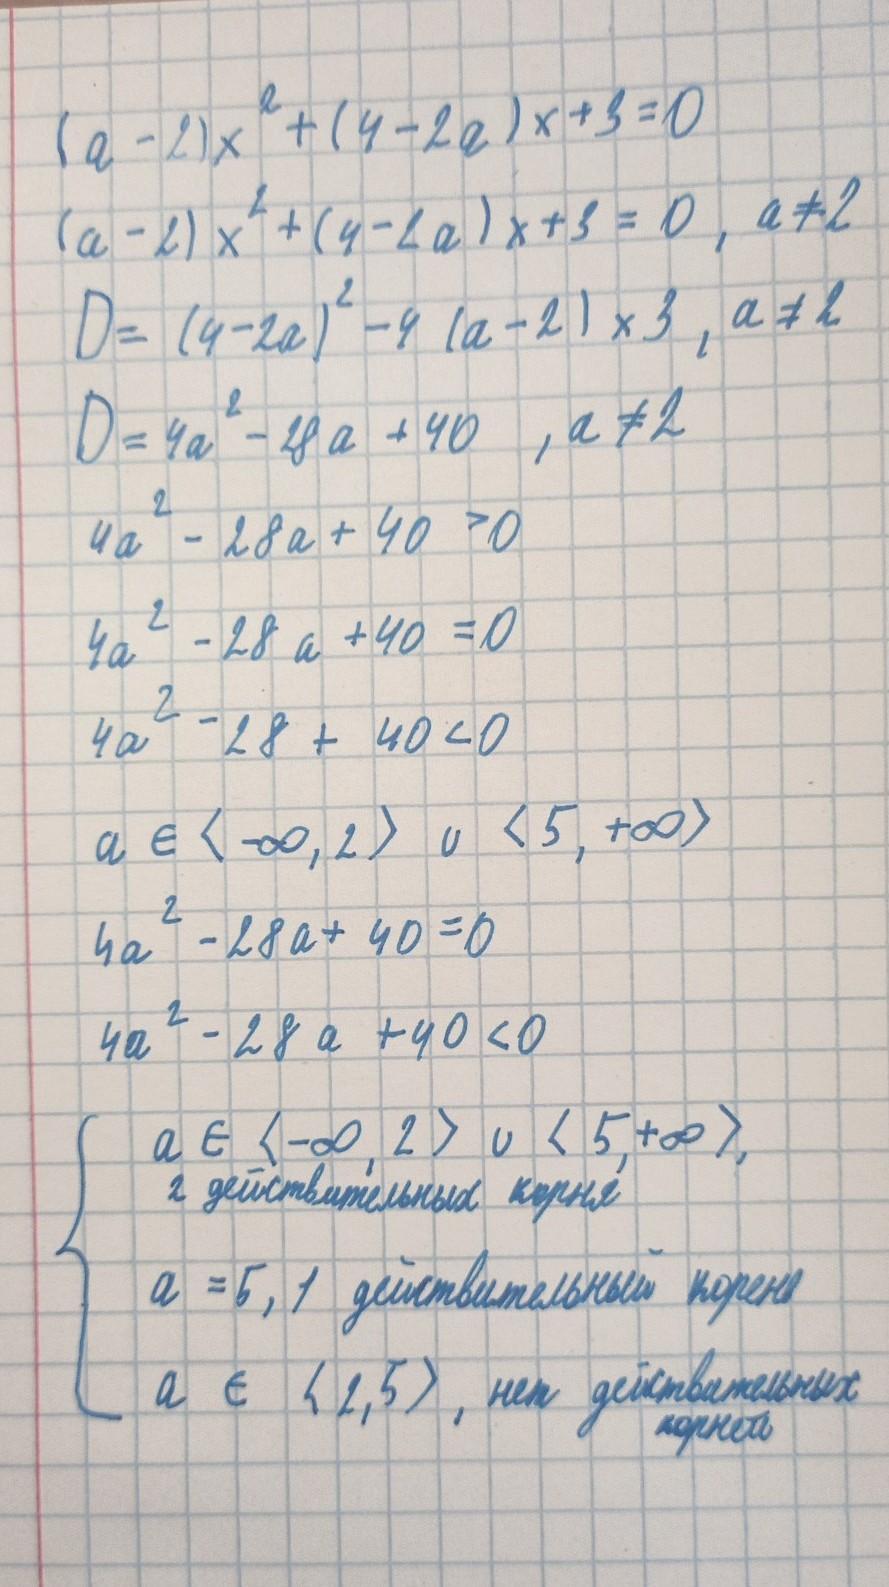 (a - 2)x² + (4 - 2a)x + 3 = 0
(a - 2)x² + (4 - 2a)x + 3 = 0, a ≠ 2
D = (4 - 2a)² - 4(a - 2) × 3, a ≠ 2
D = 4a² - 28a + 40, a ≠ 2
4a² - 28a + 40 > 0
4a² - 28a + 40 = 0
4a² - 28 + 40 < 0
a ∈ ⟨-∞, 2⟩ ∪ ⟨5, +∞⟩
4a² - 28a + 40 = 0
4a² - 28a + 40 < 0
a ∈ ⟨-∞, 2⟩ ∪ ⟨5, +∞⟩,
2 действительных корня
a = 5, 1 действительный корень
a ∈ ⟨2, 5⟩, нет действительных
корней